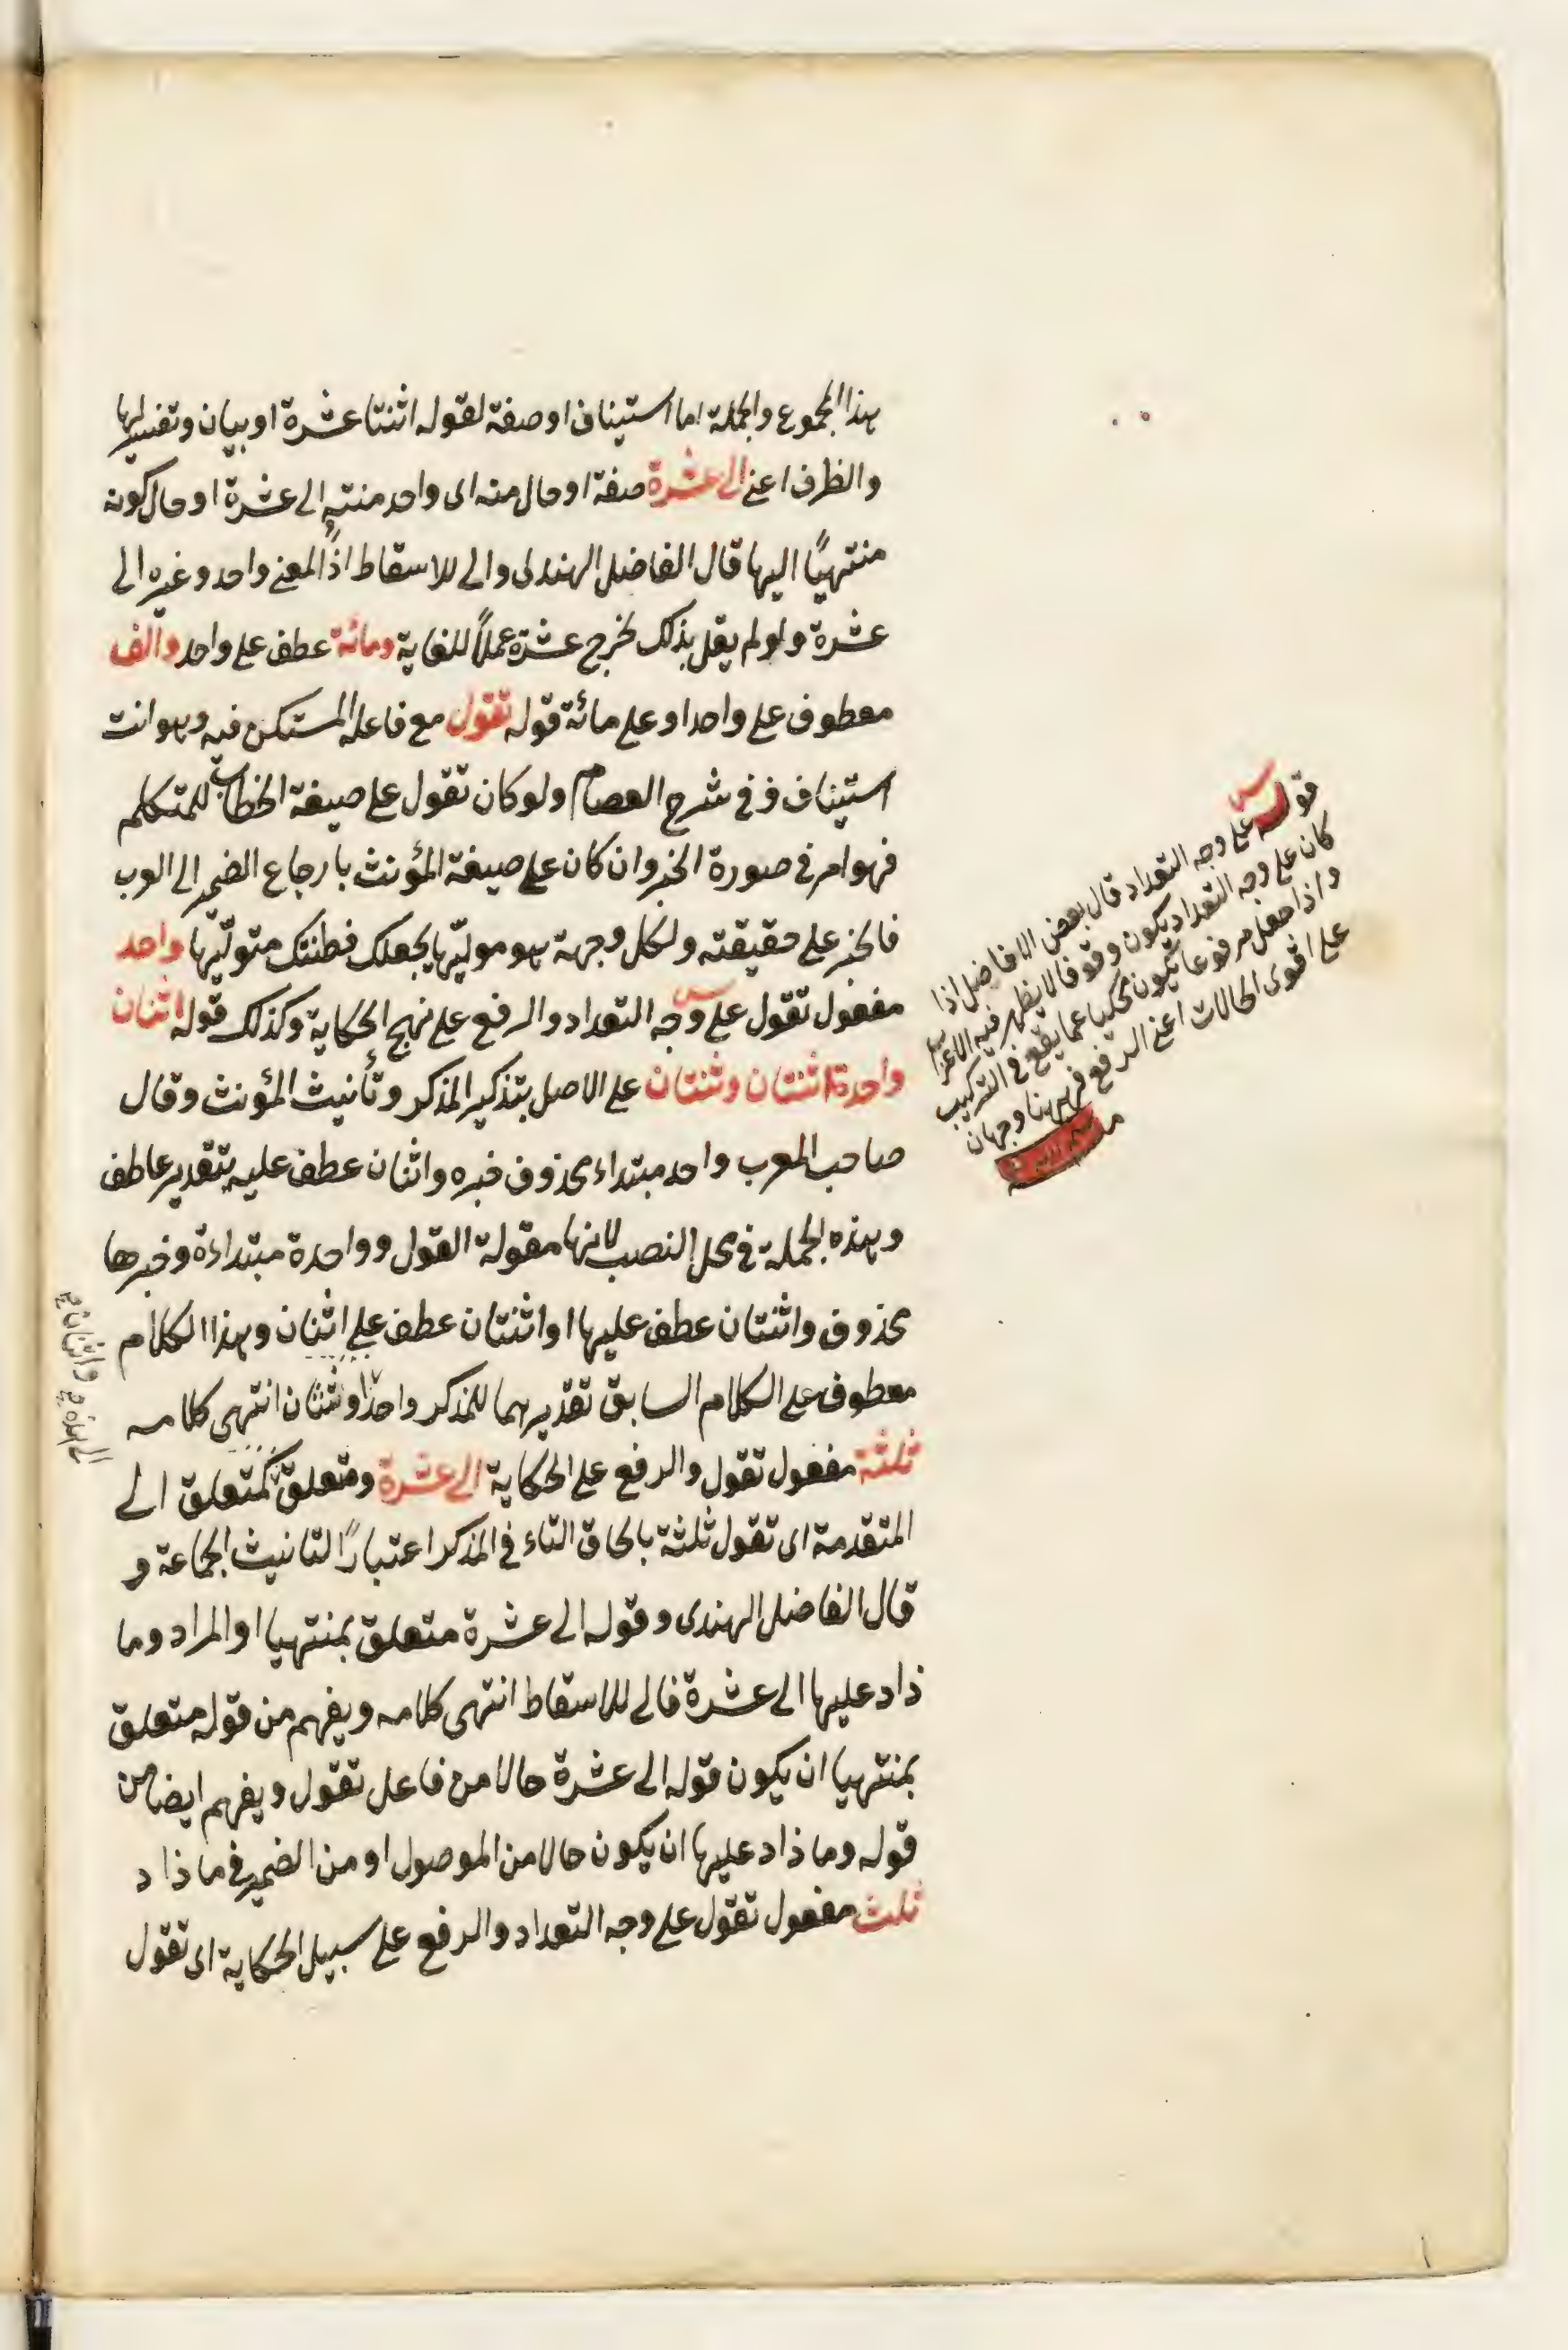 هذا المجموع والجملة اما استيناف او صفة لقوله اثنتا عشرة او بيان وتفسير لها
والظرف اعني الى عشرة صفة او حال منه اى واحد منته الى عشرة او حال كونه
منتهيًا اليها قال الفاضل الهندى والى للاسقاط اذ المعنى واحد وغيره الى
عشرة ولو لم يقل بذلك لخرج عشرة عملاً للغاية ومائة عطف على واحد والف
معطوف على واحد او على مائة قوله تقول مع فاعله المستكن فيه وهو انت
استيناف وفى شرح العصام ولو كان تقول على صيغة الخطاب للمتكلم
فهو امر فى صورة الخبر وان كان على صيغة المؤنث بارجاع الضمير الى العرب
فالخبر على حقيقته ولكل وجهة هو موليها يجعلك فطنتك متوليها واحد
مفعول تقول على وجه التعداد والرفع على نهج الحكاية وكذلك قوله اثنان
واحدة اثنتان وثنتان على الاصل بتذكير المذكر وتأنيث المؤنث وقال
صاحب المعرب واحد مبتداء محذوف خبره واثنان عطف عليه بتقدير عاطف
وهذه الجملة فى محل النصب لانها مقولة القول وواحدة مبتداءة وخبرها
محذوف واثنتان عطف عليها او اثنتان عطف على اثنان وهذا الكلام
معطوف على الكلام السابق تقديرهما للمذكر واحد وثنتان انتهى كلامه
ثلثة مفعول تقول والرفع على الحكاية الى عشرة ومتعلق كمتعلق الى
المتقدمة اى تقول ثلثة بالحاق التاء فى المذكر اعتبارًا لتانيث الجماعة و
قال الفاضل الهندى وقوله الى عشرة متعلق بمنتهيا او المراد وما
ذاد عليها الى عشرة فالى للاسقاط انتهى كلامه ويفهم من قوله متعلق
بمنتهيا ان يكون قوله الى عشرة حالا من فاعل تقول ويفهم ايضا من
قوله وما ذاد عليها ان يكون حالا من الموصول او من الضمير فى ما ذاد
ثلث مفعول تقول على وجه التعداد والرفع على سبيل الحكاية اى تقول
قوله على وجه التعداد قال بعض الافاضل اذا
كان على وجه التعداد يكون وقوفا لا يظهر فيه الاعراب
واذا جعل مرفوعا يكون محكيا عما يقع فى التركيب
على اقوى الحالات اعنى الرفع فههنا وجهان